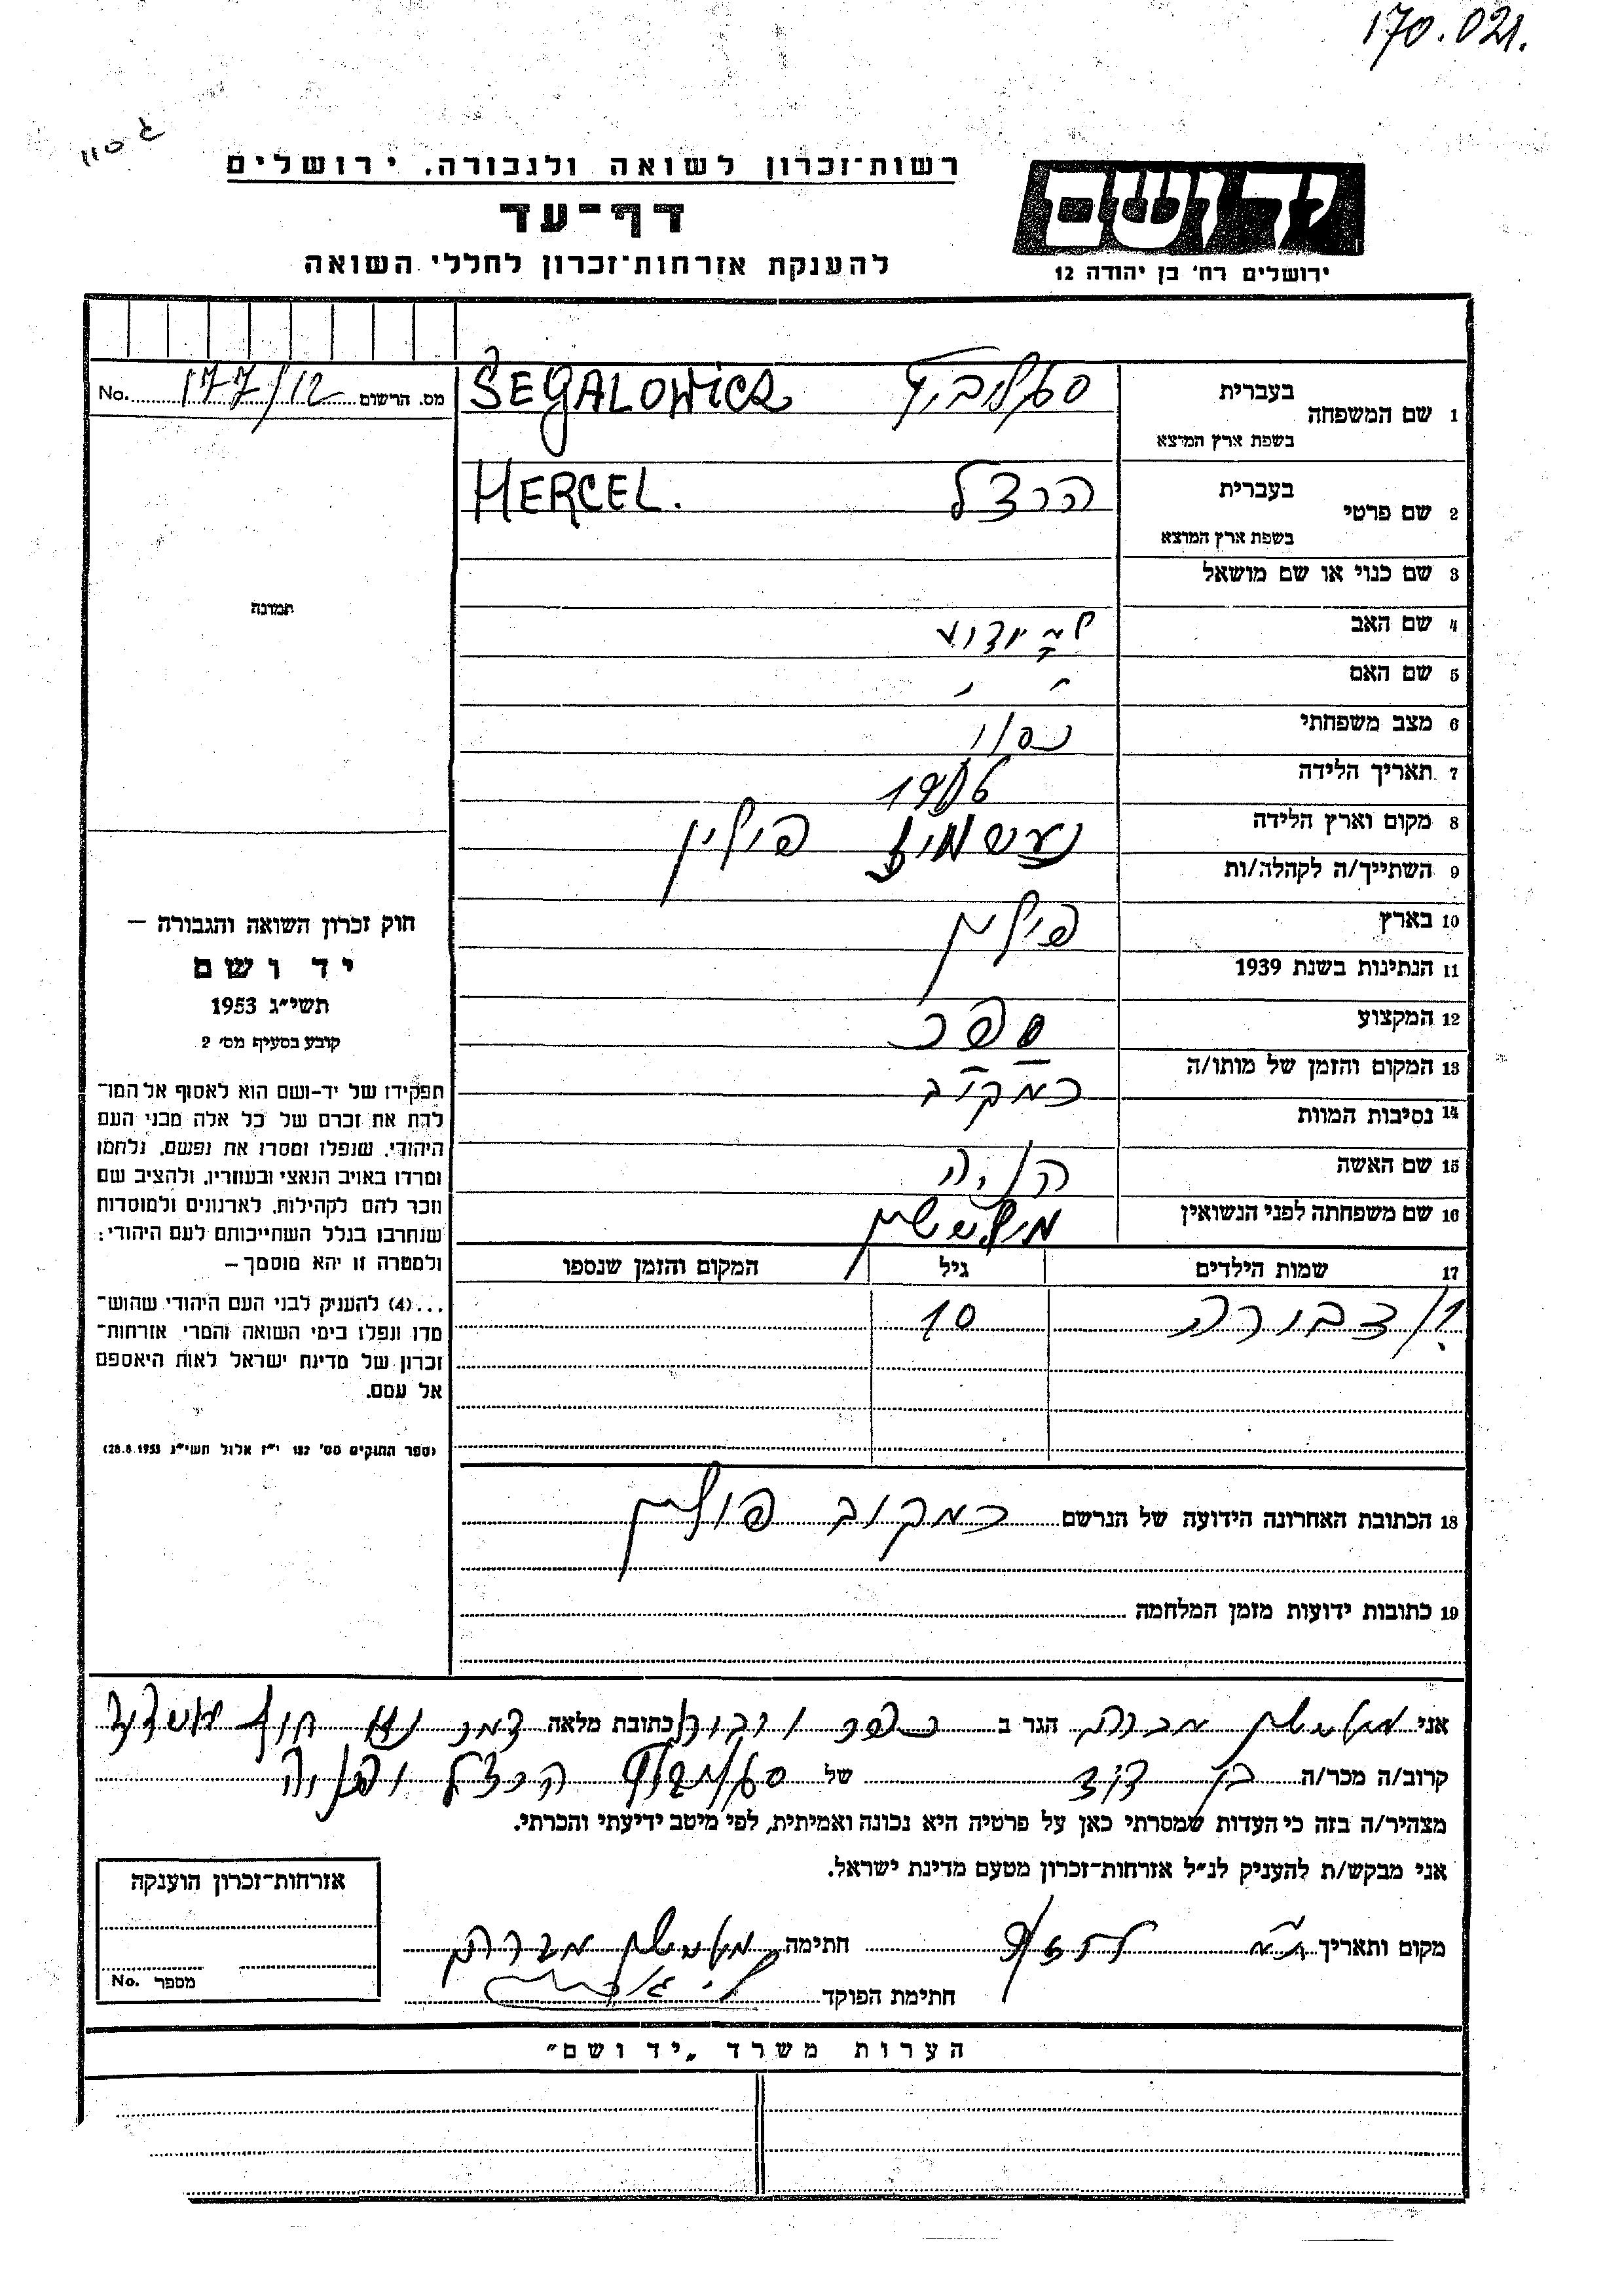 170.021.
רשות-זכרון לשואה ולגבורה, ירושלים
דף-עד
להענקת אזרחות-זכרון לחללי השואה
יד ושם
ירושלים רח' בן יהודה 12
מס. הרשום 177/12 No.
1 שם המשפחה בעברית סגלוביץ SEGALOWICZ
בשפת ארץ המוצא
2 שם פרטי בעברית הרצל HERCEL.
בשפת ארץ המוצא
3 שם כנוי או שם מושאל
4 שם האב לא יודוע
5 שם האם " "
6 מצב משפחתי נשוי
7 תאריך הלידה
8 מקום וארץ הלידה פולין
9 השתייך/ה לקהלה/ות
10 בארץ פולין
11 הנתינות בשנת 1939
12 המקצוע ספר
13 המקום והזמן של מותו/ה
14 נסיבות המוות
15 שם האשה
16 שם משפחתה לפני הנשואין
17 שמות הילדים גיל המקום והזמן שנספו
1/ דבורה 10
18 הכתובת האחרונה הידועה של הנרשם פולין
19 כתובות ידועות מזמן המלחמה
תמונה
חוק זכרון השואה והגבורה –
יד ושם
תשי"ג 1953
קובע בסעיף מס' 2
תפקידו של יד-ושם הוא לאסוף אל המו-
לדת את זכרם של כל אלה מבני העם
היהודי, שנפלו ומסרו את נפשם, נלחמו
ומרדו באויב הנאצי ובעוזריו, ולהציב שם
וזכר להם לקהילות, לארגונים ולמוסדות
שנחרבו בגלל השתייכותם לעם היהודי;
ולמטרה זו יהא מוסמך –
...(4) להעניק לבני העם היהודי שהוש-
מדו ונפלו בימי השואה והמרי אזרחות-
זכרון של מדינת ישראל לאות היאספם
אל עמם.
(ספר החוקים מס' 132 י"ז אלול תשי"ג 28.8.1953)
אני הגר ב כתובת מלאה
קרוב/ה מכר/ה בן דוד של סגלוביץ הרצל
מצהיר/ה בזה כי העדות שמסרתי כאן על פרטיה היא נכונה ואמיתית, לפי מיטב ידיעתי והכרתי.
אני מבקש/ת להעניק לנ"ל אזרחות-זכרון מטעם מדינת ישראל.
מקום ותאריך ת"א חתימה
חתימת הפוקד
אזרחות-זכרון הוענקה
מספר No.
הערות משרד „יד ושם"